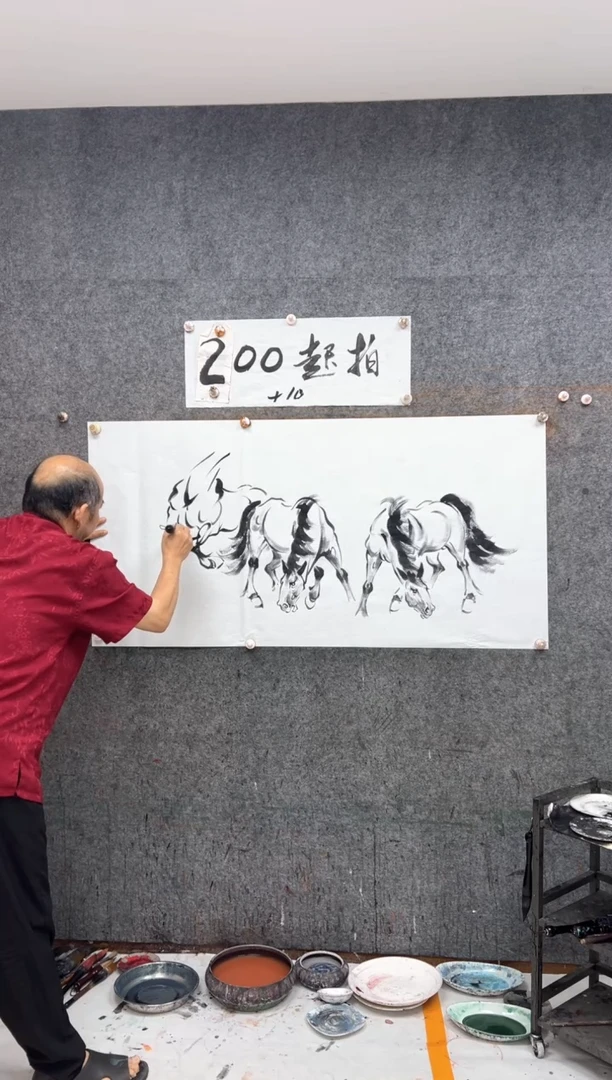 200起拍
+10